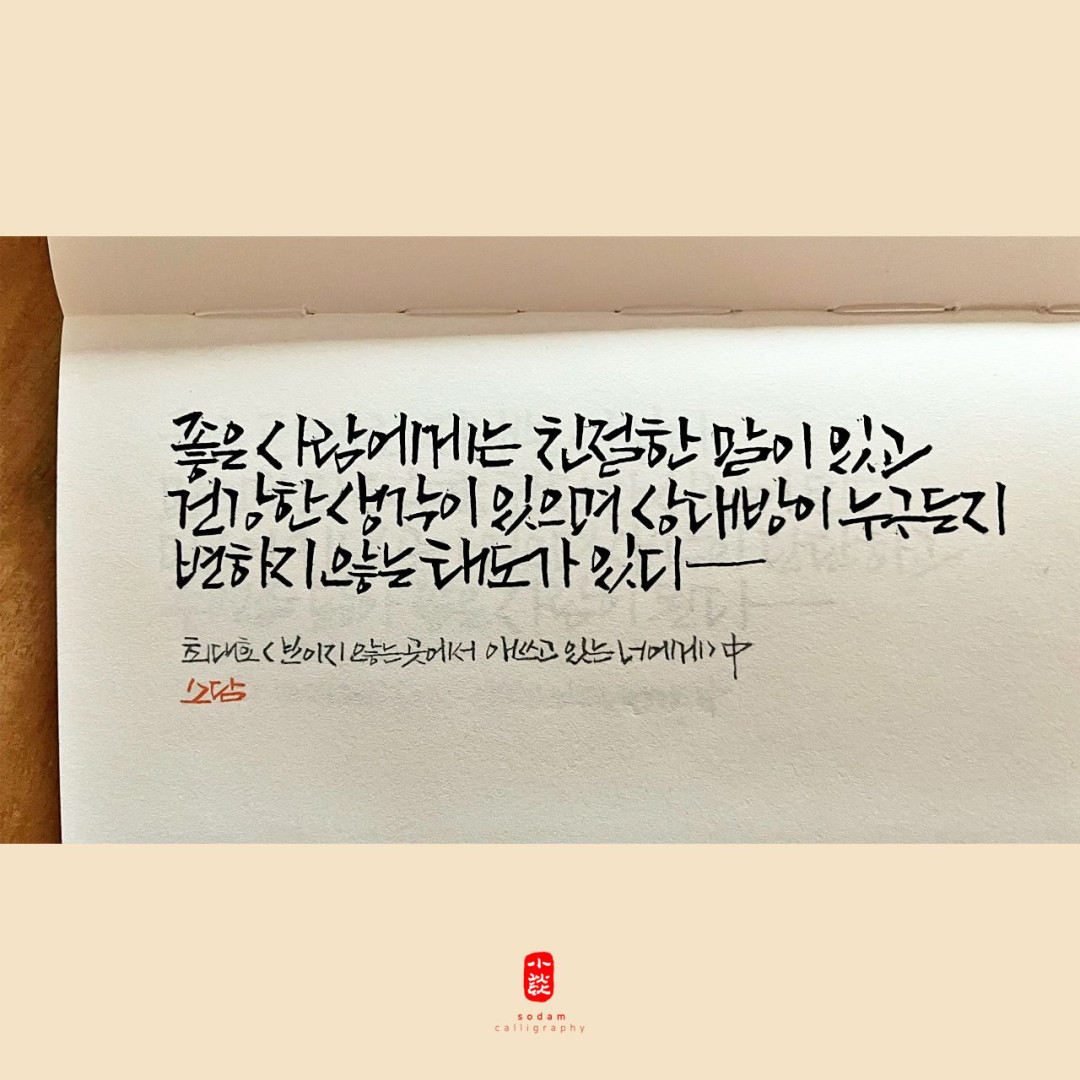 좋은 사람에게는 친절한 말이 있고
건강한 생각이 있으며 상대방이 누구든지
변하지 않는 태도가 있다
최대호 <보이지 않는 곳에서 애쓰고 있는 너에게> 中
소담
小談
sodam
calligraphy